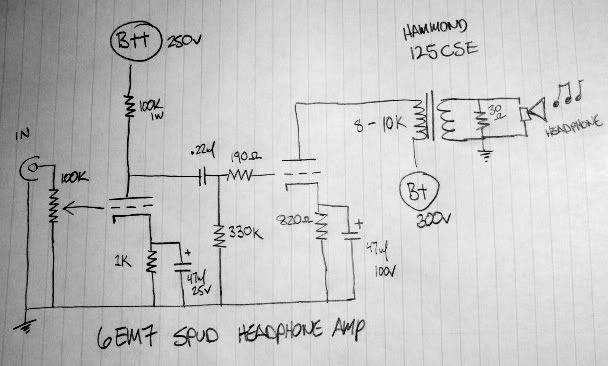 B++ 250V
HAMMOND
125CSE
100K
1W
8-10K
30
Ω
HEADPHONE
IN
100K
.22uf
190Ω
B+
300V
1K
47uf
25V
330K
820Ω
47uf
100V
+
+
6EM7 SPUD HEADPHONE AMP